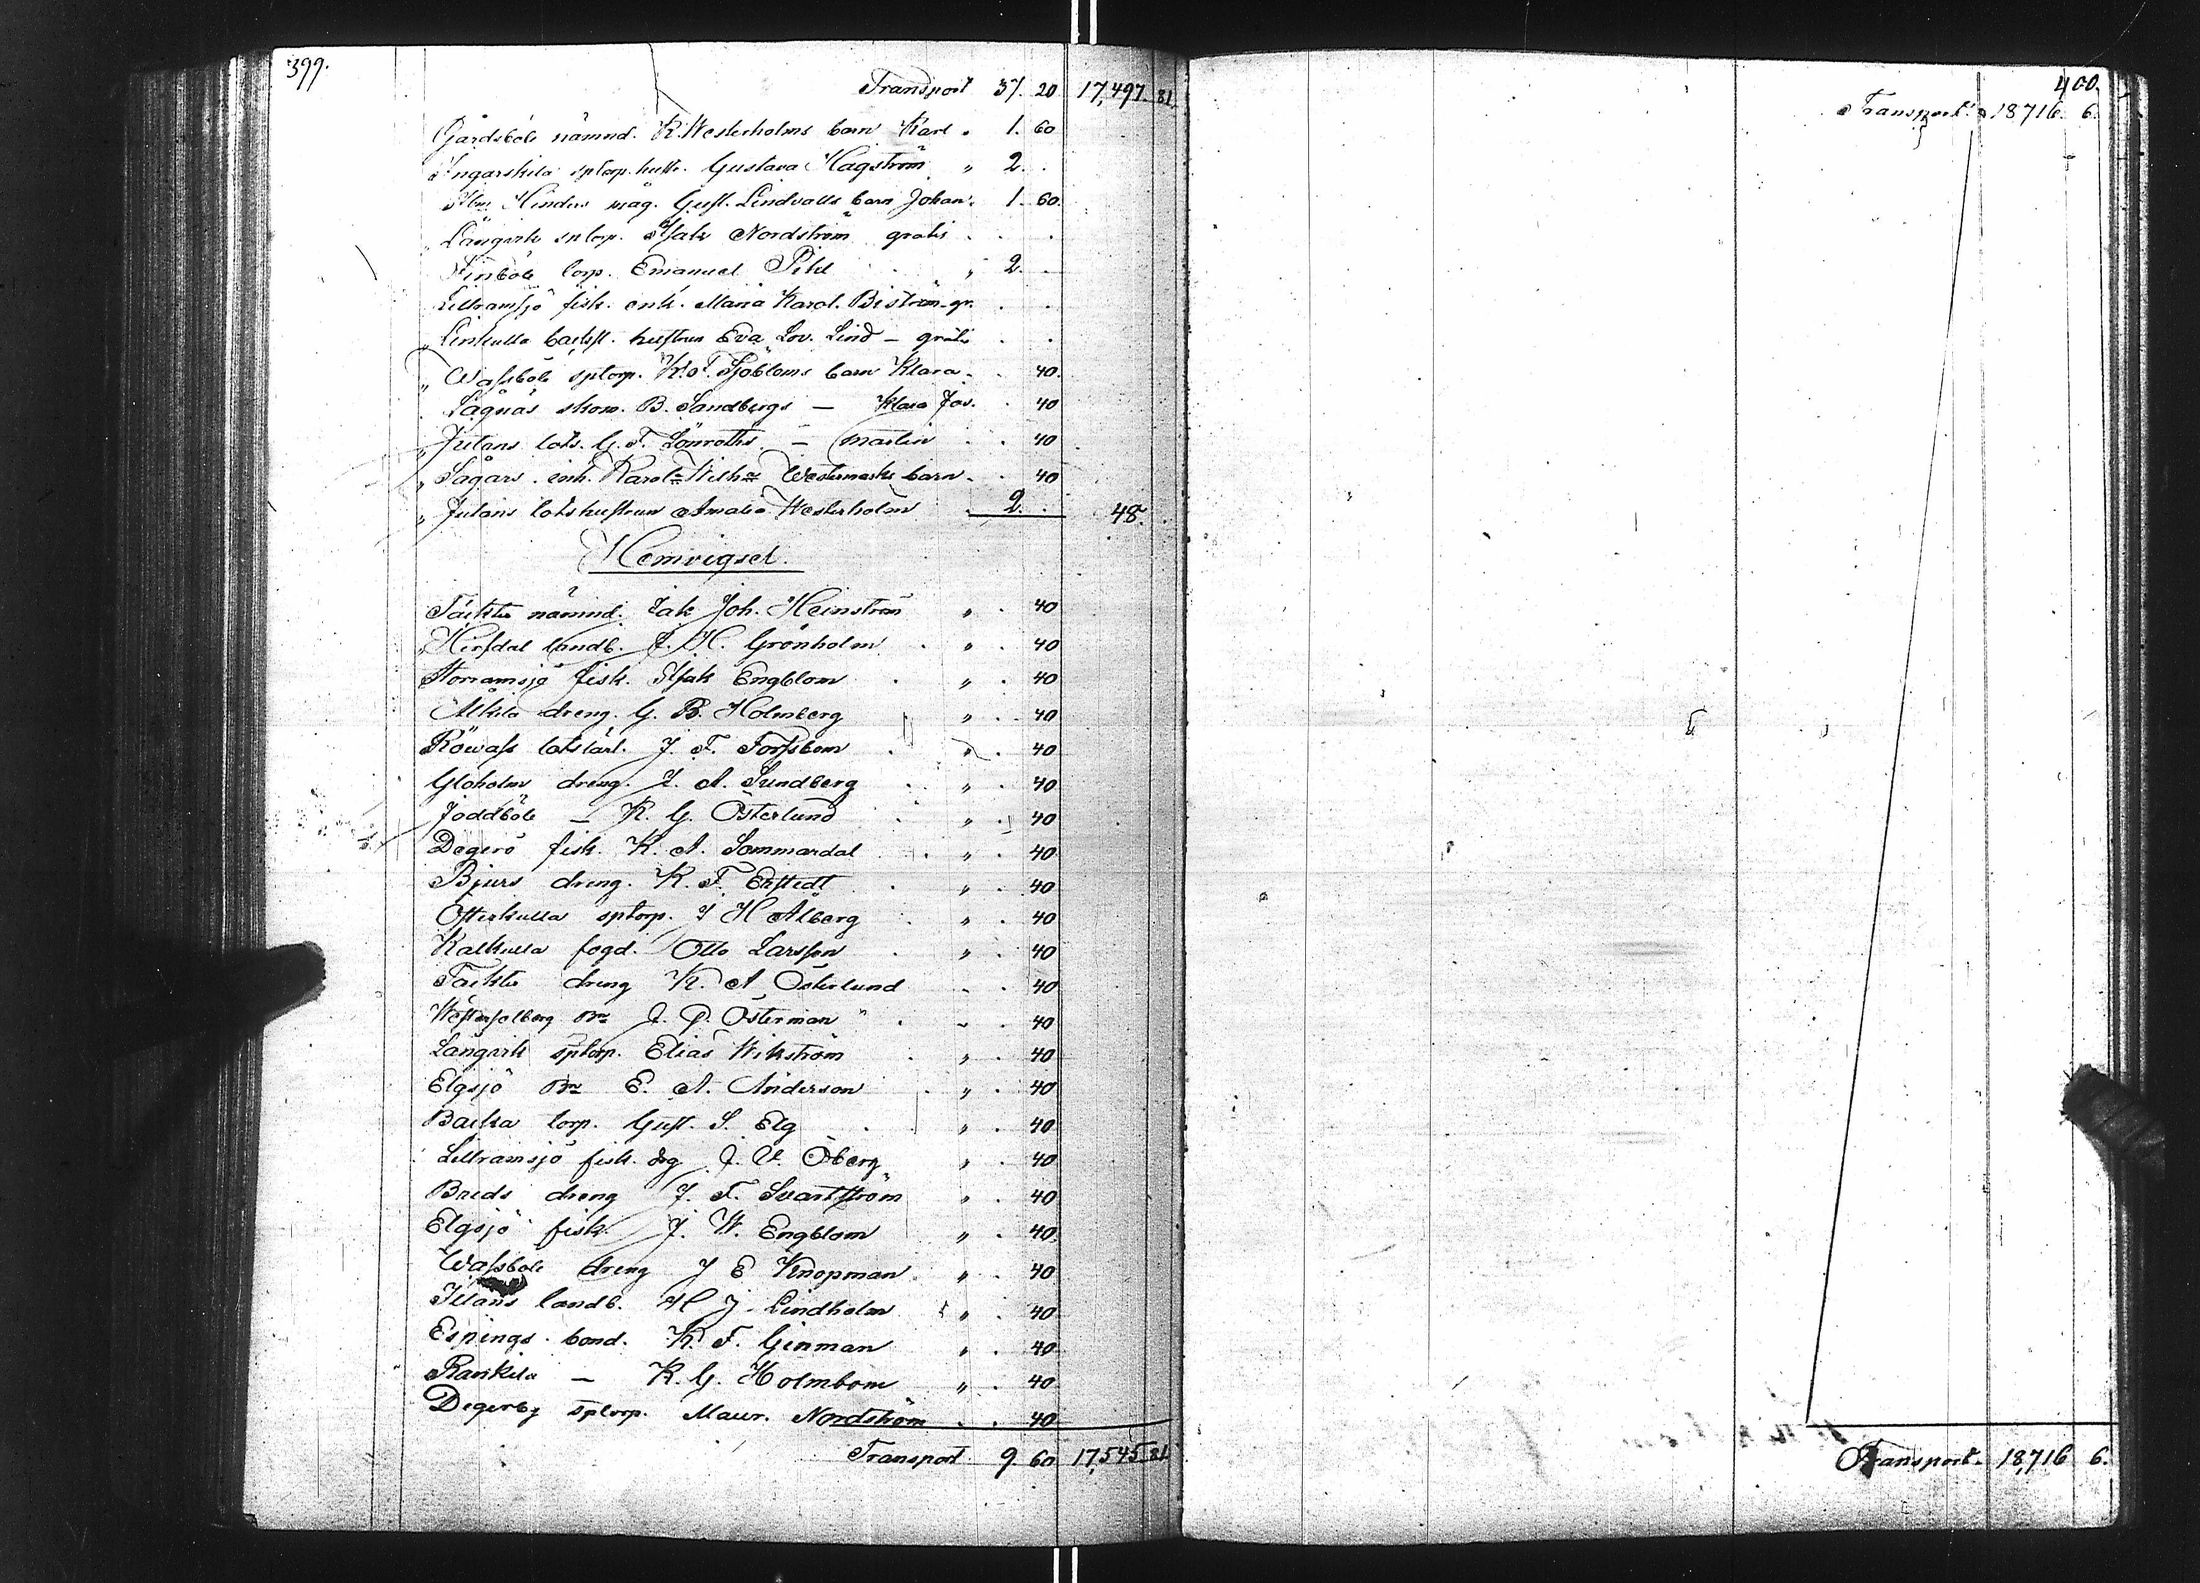 399.
Transport 37. 20 17,497. 81.
Gårdsböle nämnd. K. Westerholms barn Karl. 1. 60
Ingarskila sptorp. hustr. Gustava Hagström " 2. .
Hinders måg. Gust. Lindvalls barn Johan. 1. 60.
Långvik sptorp. Isak Nordström gratis . .
Finböle torp. Emanuel Pihl " 2. .
Lillramsjö fisk. enk. Maria Karol. Biström gr. . .
" Linkulla backst. hustrun Eva Lov. Lind – gratis . .
" Wassböle sptorp. K. F. Sjöbloms barn Klara . . 40.
Lågnäs skom. B. Sandbergs – Klara Jos. . 40
" Jutans lots. G. F. Lönroths – Martin . . 40
" Sågars enk. Karol. Wilh. Westermarks barn . . 40
" Jutans lotshustrun Amalia Westerholm . 2. . 48. .
Hemvigsel.
Täckter nämnd. Isak Joh. Heinström " . 40
Hirsdal landb. J. H. Grönholm . " . 40
Storramsjö fisk. Isak Engblom . " . 40
Älkila dreng. G. B. Holmberg " . . 40
Röwass lotslärl. J. F. Forssbom . " . 40
Gloholm dreng. J. A. Sundberg . " . 40
Joddböle – K. G. Österlund . " . 40
Degerö fisk. K. A. Sommardal . " . 40
Bjurs dreng. K. F. Ekstedt . " . 40
Öfterkulla sptorp. J H Ålberg . " . 40
Kalkulla fogd. Otto Larsson . " . 40
Täckter dreng K. A Österlund . . 40
J. D. Österman " . . 40
Långvik sptorp. Elias Wikström . " . 40
Elgsjö E. A. Anderson . " . 40
Backa torp. Gust. S. Elg . " . 40
Lillramsjö fisk. drg J. V. Öberg " . 40
Breds dreng J. F. Svartström " . 40
Elgsjö fisk. J. W. Engblom " . 40.
Wassböle dreng J E Knopman. " . 40
landb. H J. Lindholm " . 40
Espings bond. K. F. Ginman " . 40
Rankila – K. G. Holmbom " . 40
Degerby sptorp. Maur. Nordström . . 40
Transport 9. 60 17,545. 81
400.
Transport. 18716. 6.
Transport. 18,716 6.